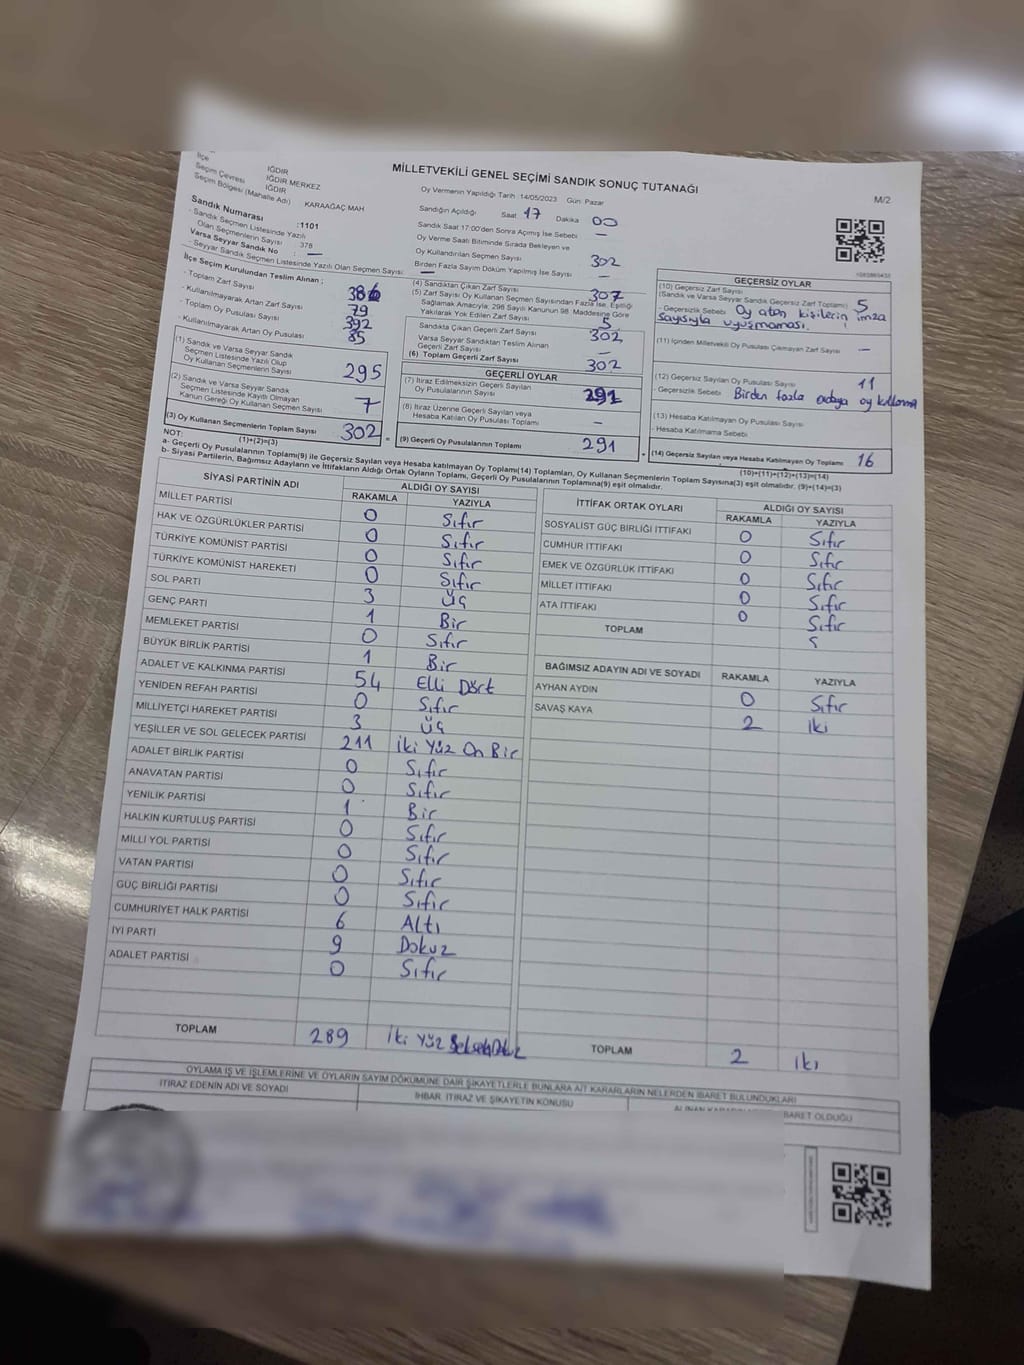 MİLLETVEKİLİ GENEL SEÇİMİ SANDIK SONUÇ TUTANAĞI
M/2
İlçe
IĞDIR
Seçim Çevresi IĞDIR MERKEZ
IĞDIR
Seçim Bölgesi (Mahalle Adı) KARAAĞAÇ MAH
Sandık Numarası :1101
- Sandık Seçmen Listesinde Yazılı
Olan Seçmenlerin Sayısı 378
Varsa Seyyar Sandık No : —
- Seyyar Sandık Seçmen Listesinde Yazılı Olan Seçmen Sayısı: —
İlçe Seçim Kurulundan Teslim Alınan ;
- Toplam Zarf Sayısı 386
- Kullanılmayarak Artan Zarf Sayısı 79
- Toplam Oy Pusulası Sayısı 392
- Kullanılmayarak Artan Oy Pusulası 85
(1) Sandık ve Varsa Seyyar Sandık
Seçmen Listesinde Yazılı Olup
Oy Kullanan Seçmenlerin Sayısı 295
(2) Sandık ve Varsa Seyyar Sandık
Seçmen Listesinde Kayıtlı Olmayan
Kanun Gereği Oy Kullanan Seçmen Sayısı 7
(3) Oy Kullanan Seçmenlerin Toplam Sayısı 302
(1)+(2)=(3)
Oy Vermenin Yapıldığı Tarih :14/05/2023 Gün: Pazar
Sandığın Açıldığı Saat 17 Dakika 00
Sandık Saat 17:00'den Sonra Açımış İse Sebebi —
Oy Verme Saati Bitiminde Sırada Bekleyen ve
Oy Kullandırılan Seçmen Sayısı 302
Birden Fazla Sayım Döküm Yapılmış İse Sayısı —
(4) Sandıktan Çıkan Zarf Sayısı 307
(5) Zarf Sayısı Oy Kullanan Seçmen Sayısından Fazla ise, Eşitliği
Sağlamak Amacıyla; 298 Sayılı Kanunun 98. Maddesine Göre
Yakılarak Yok Edilen Zarf Sayısı 5
Sandıkta Çıkan Geçerli Zarf Sayısı 302
Varsa Seyyar Sandıktan Teslim Alınan
Geçerli Zarf Sayısı —
(6) Toplam Geçerli Zarf Sayısı 302
GEÇERLİ OYLAR
(7) İtiraz Edilmeksizin Geçerli Sayılan
Oy Pusulasının Sayısı 291
(8) İtiraz Üzerine Geçerli Sayılan veya
Hesaba Katılan Oy Pusulası Toplamı —
(9) Geçerli Oy Pusulalarının Toplamı 291
GEÇERSİZ OYLAR
(10) Geçersiz Zarf Sayısı
(Sandık ve Varsa Seyyar Sandık Geçersiz Zarf Toplamı) 5
- Geçersizlik Sebebi Oy atan kişilerin imza
sayısıyla uyuşmaması.
(11) İçinden Milletvekili Oy Pusulası Çıkmayan Zarf Sayısı —
(12) Geçersiz Sayılan Oy Pusulası Sayısı 11
- Geçersizlik Sebebi Birden fazla adaya oy kullanma
(13) Hesaba Katılmayan Oy Pusulası Sayısı
- Hesaba Katılmama Sebebi
(14) Geçersiz Sayılan veya Hesaba Katılmayan Oy Toplamı 16
(10)+(11)+(12)+(13)=(14)
NOT:
a- Geçerli Oy Pusulalarının Toplamı(9) ile Geçersiz Sayılan veya Hesaba katılmayan Oy Toplamı(14) Toplamları, Oy Kullanan Seçmenlerin Toplam Sayısına(3) eşit olmalıdır. (9)+(14)=(3)
b- Siyasi Partilerin, Bağımsız Adayların ve İttifakların Aldığı Ortak Oyların Toplamı, Geçerli Oy Pusulalarının Toplamına(9) eşit olmalıdır.
SİYASİ PARTİNİN ADI ALDIĞI OY SAYISI
RAKAMLA YAZIYLA
MİLLET PARTİSİ 0 Sıfır
HAK VE ÖZGÜRLÜKLER PARTİSİ 0 Sıfır
TÜRKİYE KOMÜNİST PARTİSİ 0 Sıfır
TÜRKİYE KOMÜNİST HAREKETİ 0 Sıfır
SOL PARTİ 3 Üç
GENÇ PARTİ 1 Bir
MEMLEKET PARTİSİ 0 Sıfır
BÜYÜK BİRLİK PARTİSİ 1 Bir
ADALET VE KALKINMA PARTİSİ 54 Elli Dört
YENİDEN REFAH PARTİSİ 0 Sıfır
MİLLİYETÇİ HAREKET PARTİSİ 3 Üç
YEŞİLLER VE SOL GELECEK PARTİSİ 211 İki Yüz On Bir
ADALET BİRLİK PARTİSİ 0 Sıfır
ANAVATAN PARTİSİ 0 Sıfır
YENİLİK PARTİSİ 1 Bir
HALKIN KURTULUŞ PARTİSİ 0 Sıfır
MİLLİ YOL PARTİSİ 0 Sıfır
VATAN PARTİSİ 0 Sıfır
GÜÇ BİRLİĞİ PARTİSİ 0 Sıfır
CUMHURİYET HALK PARTİSİ 6 Altı
İYİ PARTİ 9 Dokuz
ADALET PARTİSİ 0 Sıfır
TOPLAM 289 İki Yüz Seksen Dokuz
İTTİFAK ORTAK OYLARI ALDIĞI OY SAYISI
RAKAMLA YAZIYLA
SOSYALİST GÜÇ BİRLİĞİ İTTİFAKI 0 Sıfır
CUMHUR İTTİFAKI 0 Sıfır
EMEK VE ÖZGÜRLÜK İTTİFAKI 0 Sıfır
MİLLET İTTİFAKI 0 Sıfır
ATA İTTİFAKI 0 Sıfır
TOPLAM
BAĞIMSIZ ADAYIN ADI VE SOYADI RAKAMLA YAZIYLA
AYHAN AYDIN 0 Sıfır
SAVAŞ KAYA 2 İki
TOPLAM 2 İki
OYLAMA İŞ VE İŞLEMLERİNE VE OYLARIN SAYIM DÖKÜMÜNE DAİR ŞİKAYETLERLE BUNLARA AİT KARARLARIN NELERDEN İBARET BULUNDUKLARI
İTİRAZ EDENİN ADI VE SOYADI
İHBAR, İTİRAZ VE ŞİKAYETİN KONUSU